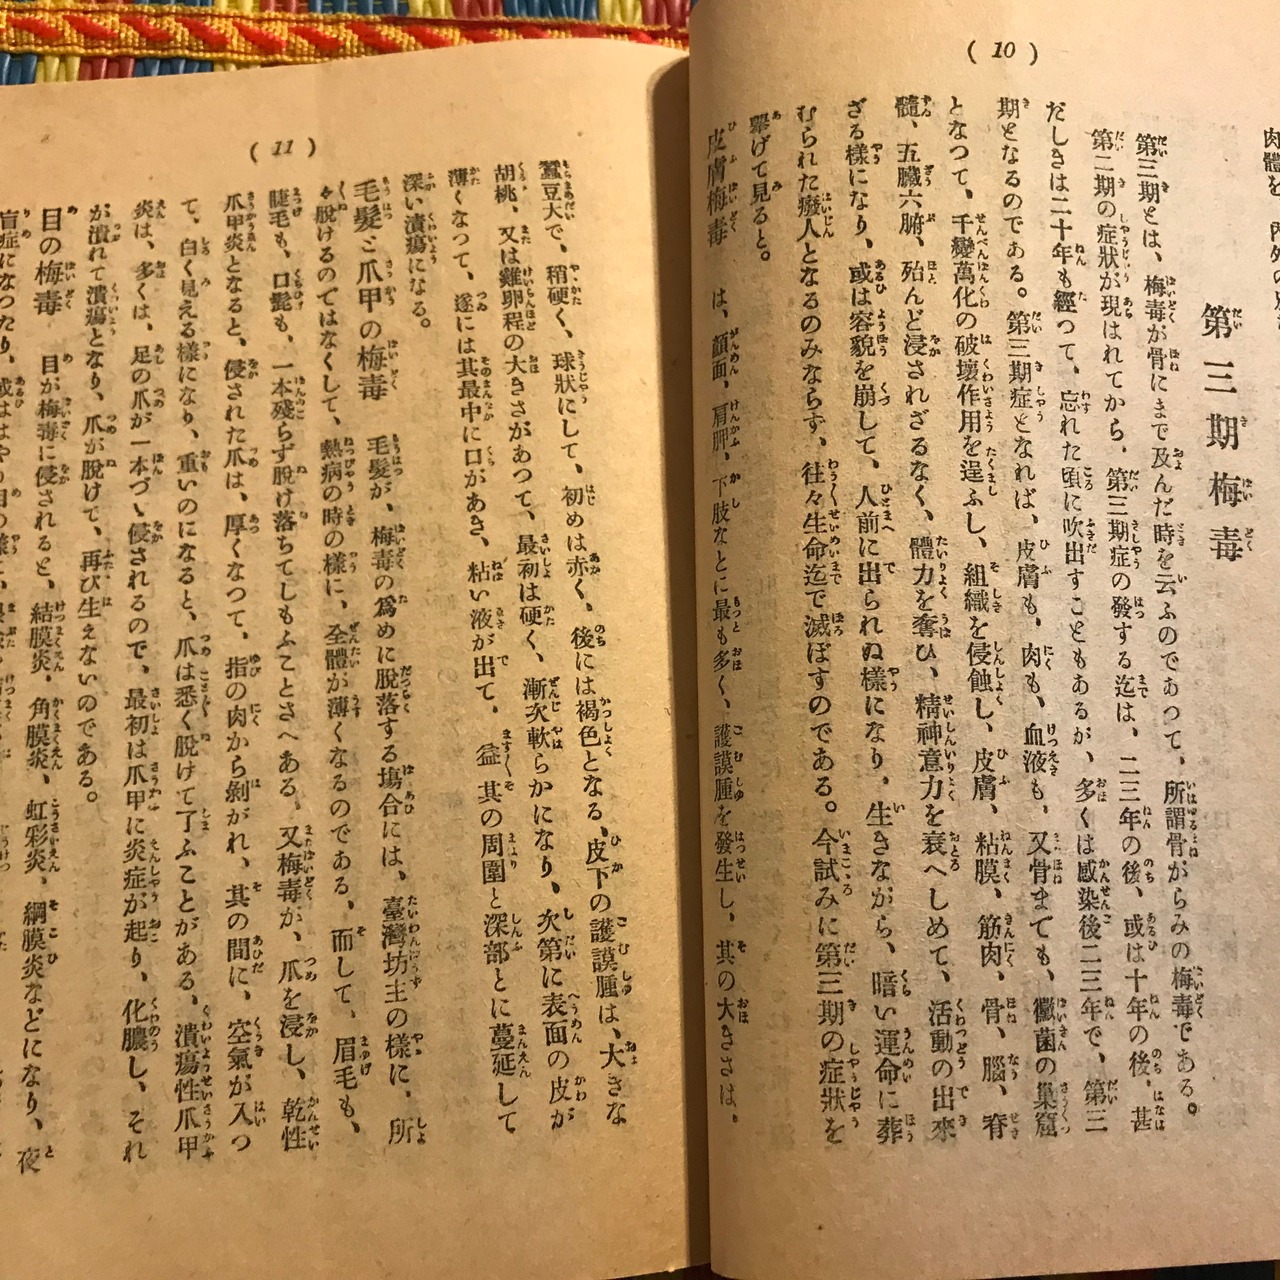 ( 10 )
肉體を、內外の
第三期梅毒
第三期とは、梅毒が骨にまで及んだ時を云ふのであつて、所謂骨がらみの梅毒である。
第二期の症狀が現はれてから、第三期症の發する迄は、二三年の後、或は十年の後、甚
だしきは二十年も經つて、忘れた頃に吹出すこともあるが、多くは感染後二三年で、第三
期となるのである。第三期症となれば、皮膚も、肉も、血液も、又骨までも、黴菌の巢窟
となつて、千變萬化の破壞作用を逞ふし、組織を侵蝕し、皮膚、粘膜、筋肉、骨、腦、脊
髓、五臟六腑、殆んど浸されざるなく、體力を奪ひ、精神意力を衰へしめて、活動の出來
ざる樣になり、或は容貌を崩して、人前に出られぬ樣になり、生きながら、暗い運命に葬
むられた癈人となるのみならず、往々生命迄で滅ぼすのである。今試みに第三期の症狀を
擧げて見ると。
皮膚梅毒 は、顏面、肩胛、下肢なとに最も多く、護謨腫を發生し、其の大きさは、
( 11 )
蠶豆大で、稍硬く、球狀にして、初めは赤く、後には褐色となる、皮下の護謨腫は、大きな
胡桃、又は雞卵程の大きさがあつて、最初は硬く、漸次軟らかになり、次第に表面の皮が
薄くなつて、遂には其最中に口があき、粘い液が出て、益其の周圍と深部とに蔓延して
深い潰瘍になる。
毛髮と爪甲の梅毒 毛髮が、梅毒の爲めに脫落する塲合には、臺灣坊主の樣に、所
々脫けるのではなくして、熱病の時の樣に、全體が薄くなるのである、而して、眉毛も、
睫毛も、口髭も、一本殘らず脫け落ちてしもふことさへある。又梅毒が、爪を浸し、乾性
爪甲炎となると、侵された爪は、厚くなつて、指の肉から剝がれ、其の間に、空氣が入つ
て、白く見える樣になり、重いのになると、爪は悉く脫けて了ふことがある、潰瘍性爪甲
炎は、多くは、足の爪が一本づゝ侵されるので、最初は爪甲に炎症が起り、化膿し、それ
が潰れて潰瘍となり、爪が脫けて、再び生えないのである。
目の梅毒 目が梅毒に侵されると、結膜炎、角膜炎、虹彩炎、綱膜炎などになり、夜
盲症になつたり、或ははやり目の樣に、